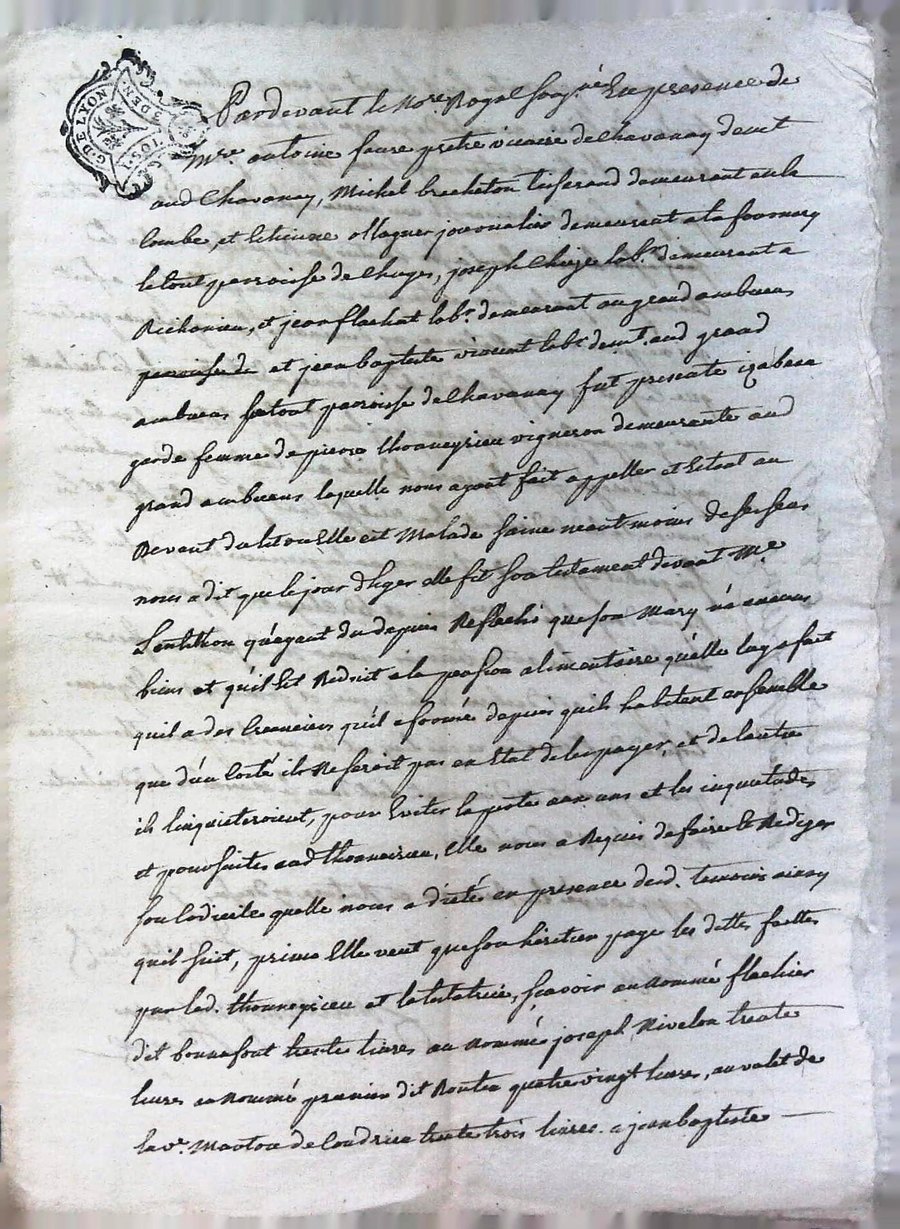 G. DE LYON
3 DEN.
Pardevant le No.re Royal sousné En presence de
Mre. antoine faure pretre vicaire de Chavanay demt
aud Chavanay, Michel brecheton tisserand demeurant au la
Combe, et Etienne Ollagner journalier demeurant a la fournary
le tout parroisse de Chuyes, joseph Chirze labr. demeurant a
Richonieu, et jean flachat labr. demeurant au grand ambuens
parroisse de et jean baptiste vincent labr. demt. aud grand
ambuens surtout parroisse de Chavanay fut presente izabeau
garde femme de pierre thoneyrieu vigneron demeurante aud
grand ambuens laquelle nous ayant fait appeller et Etent au
devant du lit ou Elle est Malade saine neantmoins de ses sens
nous a dit que le jour d'hyer elle fit son testament devant Me
Sentithon qu'ayant du depuis Reflechi que son Mary n'a aucuns
biens et qu'il Est Reduit a la pension alimentaire qu'elle luy a fait
quil a des Creanciers qu'il a formé depuis quils habitent ensemble
que d'un Coté ils Ne seroit pas en Etat de les payer, et de l'autre
ils l'inquieteroient, pour Eviter la perte aux uns et les inquietudes
et poursuites aud thoneirieu, Elle nous a Requis de faire et Rediger
son Codicile quelle nous a dictés en presence desd. temoins ainsy
quil suit, primo Elle veut que son héritier paye les dettes faittes
par led. thoneyrieu et la testatrice, sçavoir au nommé flachier
dit bonnefont trente livres au nommé joseph Rivelon trente
livres au nommé premier dit Roulin quatre vingt livres, au valet de
la ve. Marton de Condrieu trente trois livres. a jean baptiste